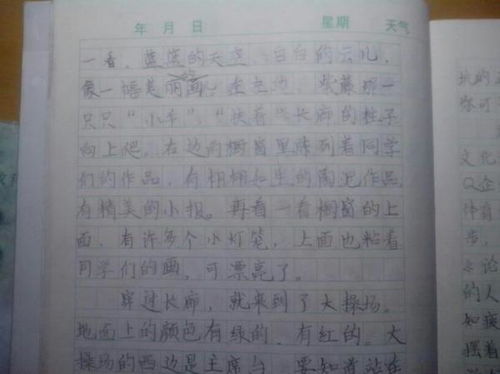 年 月 日 星期 天气
一看，蓝蓝的天空、白白的云儿，
像一幅美丽画。走左边，紫藤那一
只只“小车”，“扶着”长廊的柱子
向上爬，右边的橱窗里陈列着同学
们的作品，有栩栩如生的陶泥作品
有精美的小报。再看一看橱窗的上
面，有许多个小灯笼，上面也粘着
同学们的画，可漂亮了。
穿过长廊，就来到了大操场。
地面上的颜色有绿的，有红的。大
操场的西边是主席台，要知道站在
文化
Q企
体育
告，
的人